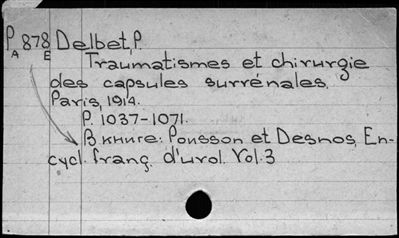 P 878 Delbet, P.
A E
Traumatismes et chirurgie
des capsules surrénales.
Paris, 1914.
P. 1037-1071.
В книге: Pousson et Desnos, En-
cycl. franç. d'urol. Vol. 3